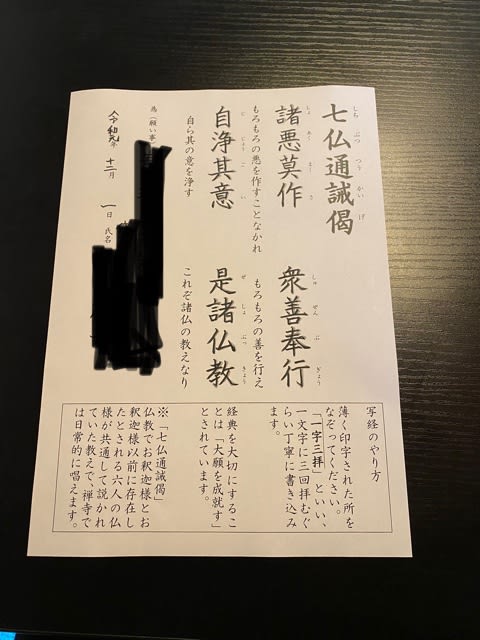 七仏通誡偈
しちぶつつうかいげ
諸悪莫作
しょあくまくさ
もろもろの悪を作すことなかれ
衆善奉行
しゅぜんぶぎょう
もろもろの善を行え
自浄其意
じじょうごい
自ら其の意を浄す
是諸仏教
ぜしょぶっきょう
これぞ諸仏の教えなり
為(願い事
令和元年 十二月 一日 氏名
写経のやり方
薄く印字された所を
なぞってください。
「一字三拝」といい、
一文字に三回拝むぐ
らい丁寧に書き込み
ます。
経典を大切にするこ
とは「大願を成就す」
とされています。
※「七仏通誡偈」
仏教でお釈迦様とお
釈迦様以前に存在し
たとされる六人の仏
様が共通して説かれ
ていた教えで、禅寺で
は日常的に唱えます。